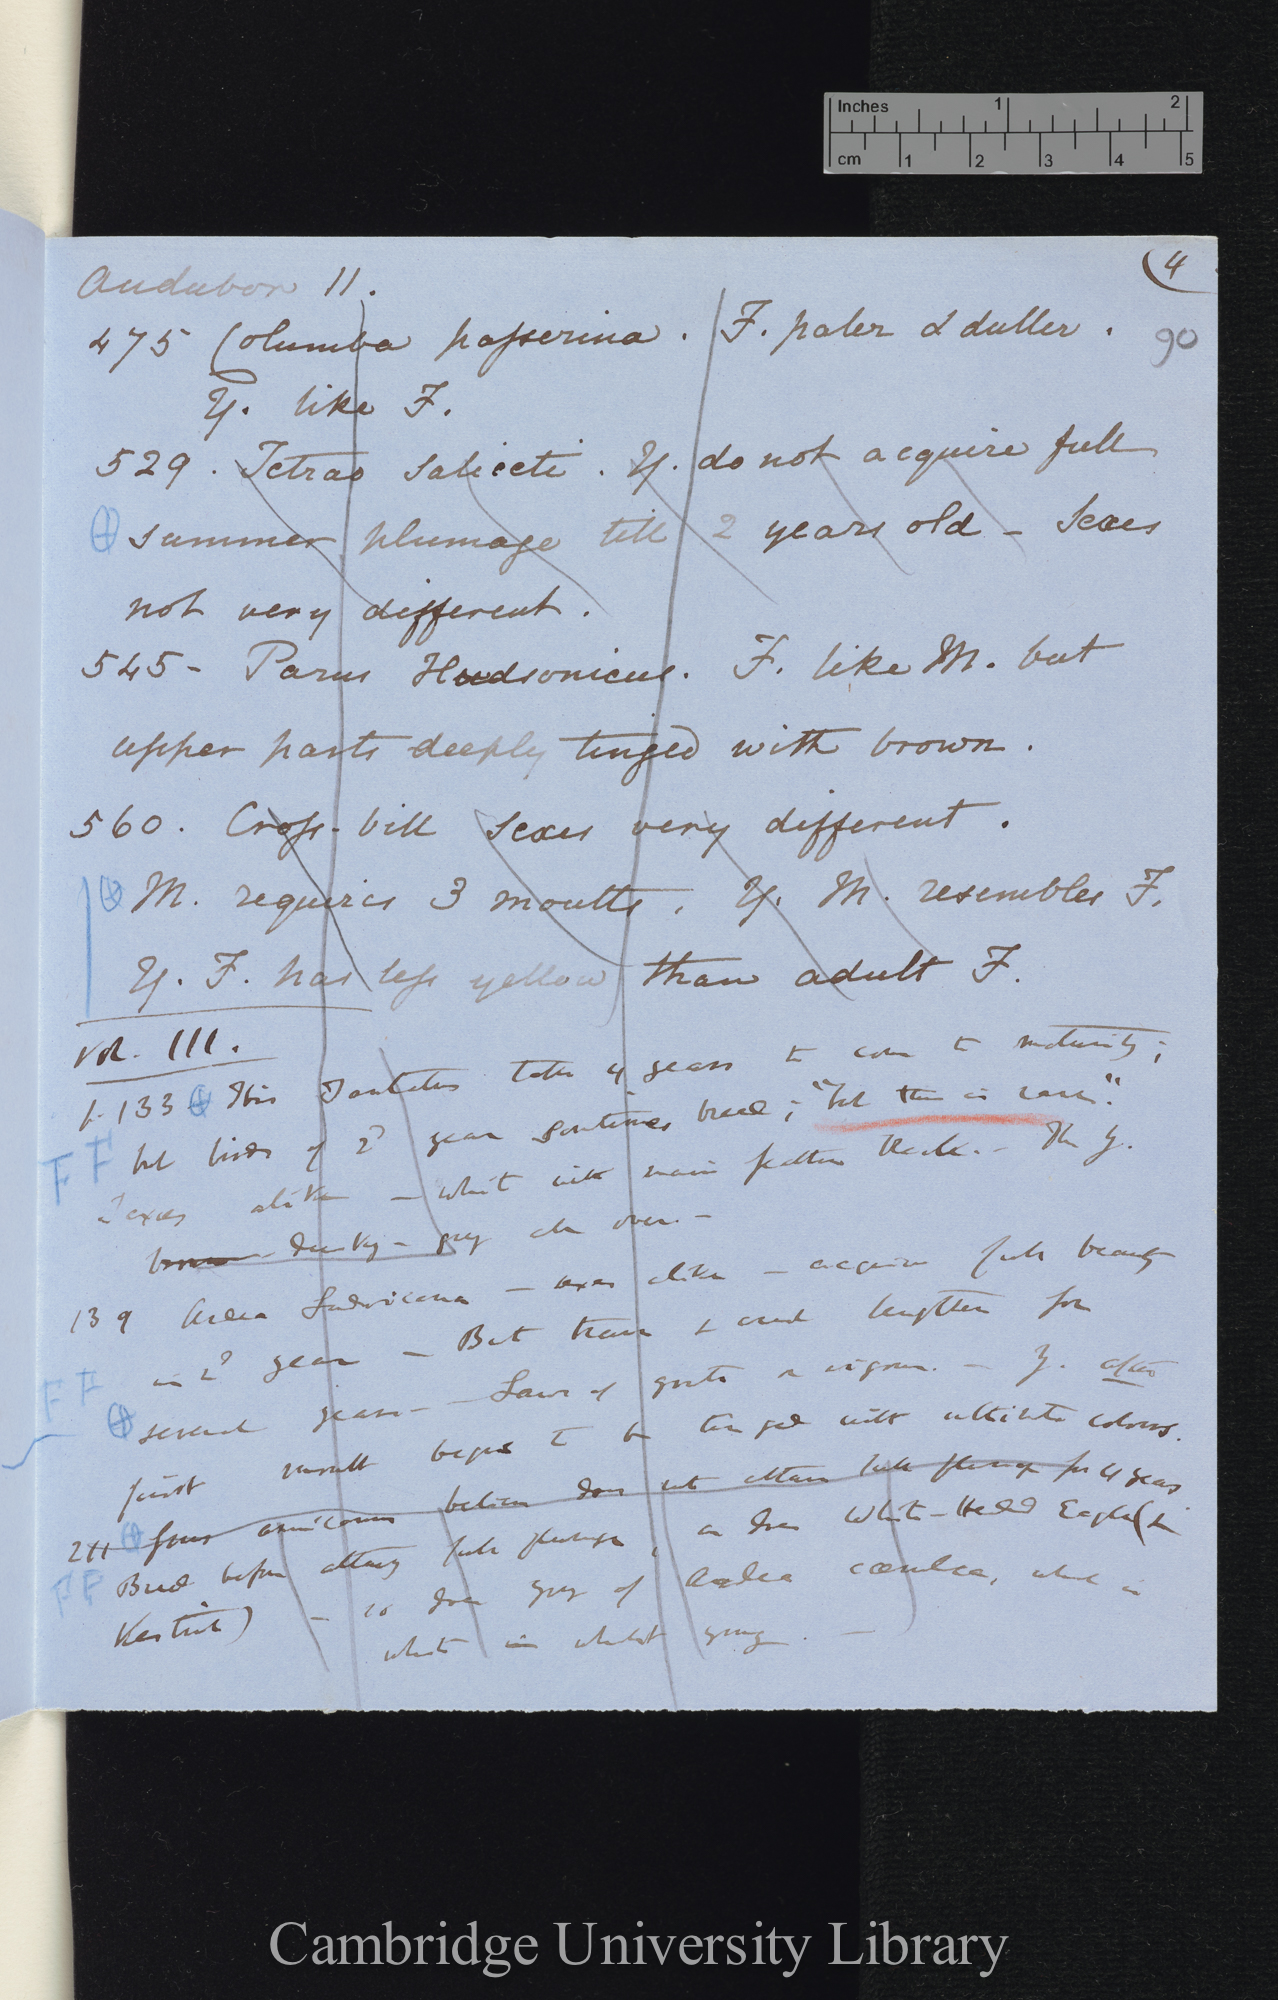 Inches 1 2
cm 1 2 3 4 5
(4
Audubon II.
90
475 Columba passerina. F. paler & duller.
Y. like F.
529. Tetrao Saliceti. Y. do not acquire full
summer plumage till 2 years old – Sexes
not very different.
545– Parus Hudsonicus. F. like M. but
upper parts deeply tinged with brown.
560. Cross-bill Sexes very different.
M. requires 3 moults. Y. M. resembles F.
Y. F. has less yellow than adult F.
Vol. III.
p. 133 Ibis Tantalus takes 4 years to come to maturity;
FF but birds of 2d year sometimes breed; "but this is rare".
Sexes alike – white with some feathers black. – The Y.
brown dusky-grey all over. –
139 Ardea Ludoviciana – sexes alike – acquire full beauty
in 2d year – But train & crest lengthen for
FF several years – Laws of growth & vigour. – Y. after
first moult begins to be tinged with ultimate colours.
244 Grus americanus believes does not attain full plumage for 4 years
FF Breed before attaining full plumage, as does White-Headed Eagle (&
Kestrel) – so does young of Ardea cærulea, which is
white in whilst young. –
Cambridge University Library